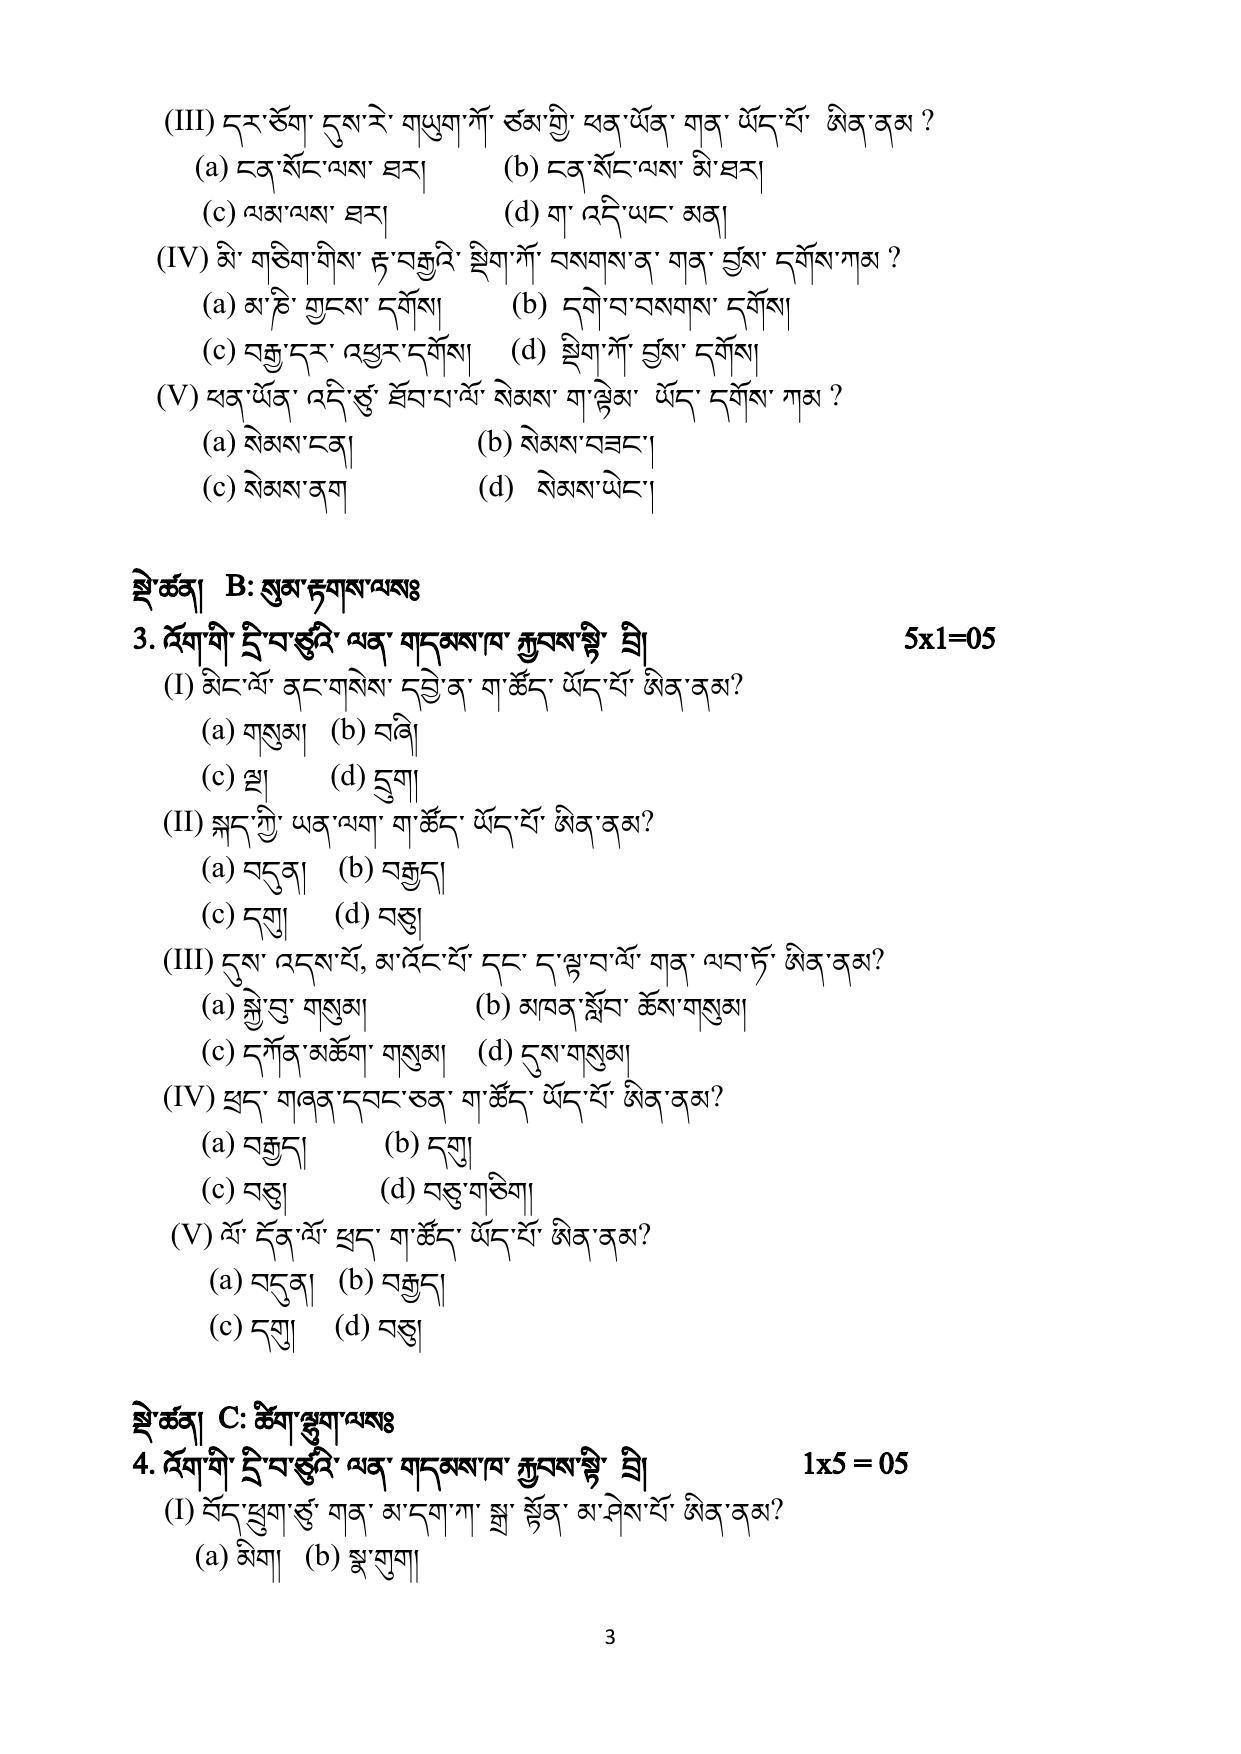 (III) དར་ཅོག་ དུས་རེ་ གཡུག་ཀོ་ ཙམ་གྱི་ ཕན་ཡོན་ གན་ ཡོད་པོ་ ཨིན་ནམ ?
(a) ངན་སོང་ལས་ ཐར། (b) ངན་སོང་ལས་ མི་ཐར།
(c) ལམ་ལས་ ཐར། (d) ག་ འདི་ཡང་ མན།
(IV) མི་ གཅིག་གིས་ རྟ་བརྒྱའི་ སྡིག་ཀོ་ བསགས་ན་ གན་ བྱོས་ དགོས་ཀམ ?
(a) མ་ཎི་ གྱངས་ དགོས། (b) དགེ་བ་བསགས་ དགོས།
(c) བརྒྱ་དར་ འཕྱར་དགོས། (d) སྡིག་ཀོ་ བྱོས་ དགོས།
(V) ཕན་ཡོན་ འདི་ཙུ་ ཐོབ་པ་ལོ་ སེམས་ ག་ལྟེམ་ ཡོད་ དགོས་ ཀམ ?
(a) སེམས་ངན། (b) སེམས་བཟང་།
(c) སེམས་ནག (d) སེམས་ཡེང་།
སྡེ་ཚན། B: སུམ་རྟགས་ལསཿ
3. འོག་གི་ དྲི་བ་ཙུའི་ ལན་ གདམས་ཁ་ རྐྱབས་སྟི་ བྲི། 5x1=05
(I) མིང་ལོ་ ནང་གསེས་ དབྱེ་ན་ ག་ཚོད་ ཡོད་པོ་ ཨིན་ནམ?
(a) གསུམ། (b) བཞི།
(c) ལྔ། (d) དྲུག།
(II) སྐད་ཀྱི་ ཡན་ལག་ ག་ཚོད་ ཡོད་པོ་ ཨིན་ནམ?
(a) བདུན། (b) བརྒྱད།
(c) དགུ། (d) བཅུ།
(III) དུས་ འདས་པོ, མ་འོང་པོ་ དང་ ད་ལྟ་བ་ལོ་ གན་ ལབ་ཏོ་ ཨིན་ནམ?
(a) སྐྱེ་བུ་ གསུམ། (b) མཁན་སློབ་ ཆོས་གསུམ།
(c) དཀོན་མཆོག་ གསུམ། (d) དུས་གསུམ།
(IV) ཕྲད་ གཞན་དབང་ཅན་ ག་ཚོད་ ཡོད་པོ་ ཨིན་ནམ?
(a) བརྒྱད། (b) དགུ།
(c) བཅུ། (d) བཅུ་གཅིག།
(V) ལོ་ དོན་ལོ་ ཕྲད་ ག་ཚོད་ ཡོད་པོ་ ཨིན་ནམ?
(a) བདུན། (b) བརྒྱད།
(c) དགུ། (d) བཅུ།
སྡེ་ཚན། C: ཚིག་ལྷུག་ལསཿ
4. འོག་གི་ དྲི་བ་ཙུའི་ ལན་ གདམས་ཁ་ རྐྱབས་སྟི་ བྲི། 1x5 = 05
(I) བོད་ཕྲུག་ཙུ་ གན་ མ་དག་ཀ་ སྒྲ་ སྟོན་ མ་ཤེས་པོ་ ཨིན་ནམ?
(a) མིག། (b) སྣ་གུག།
3